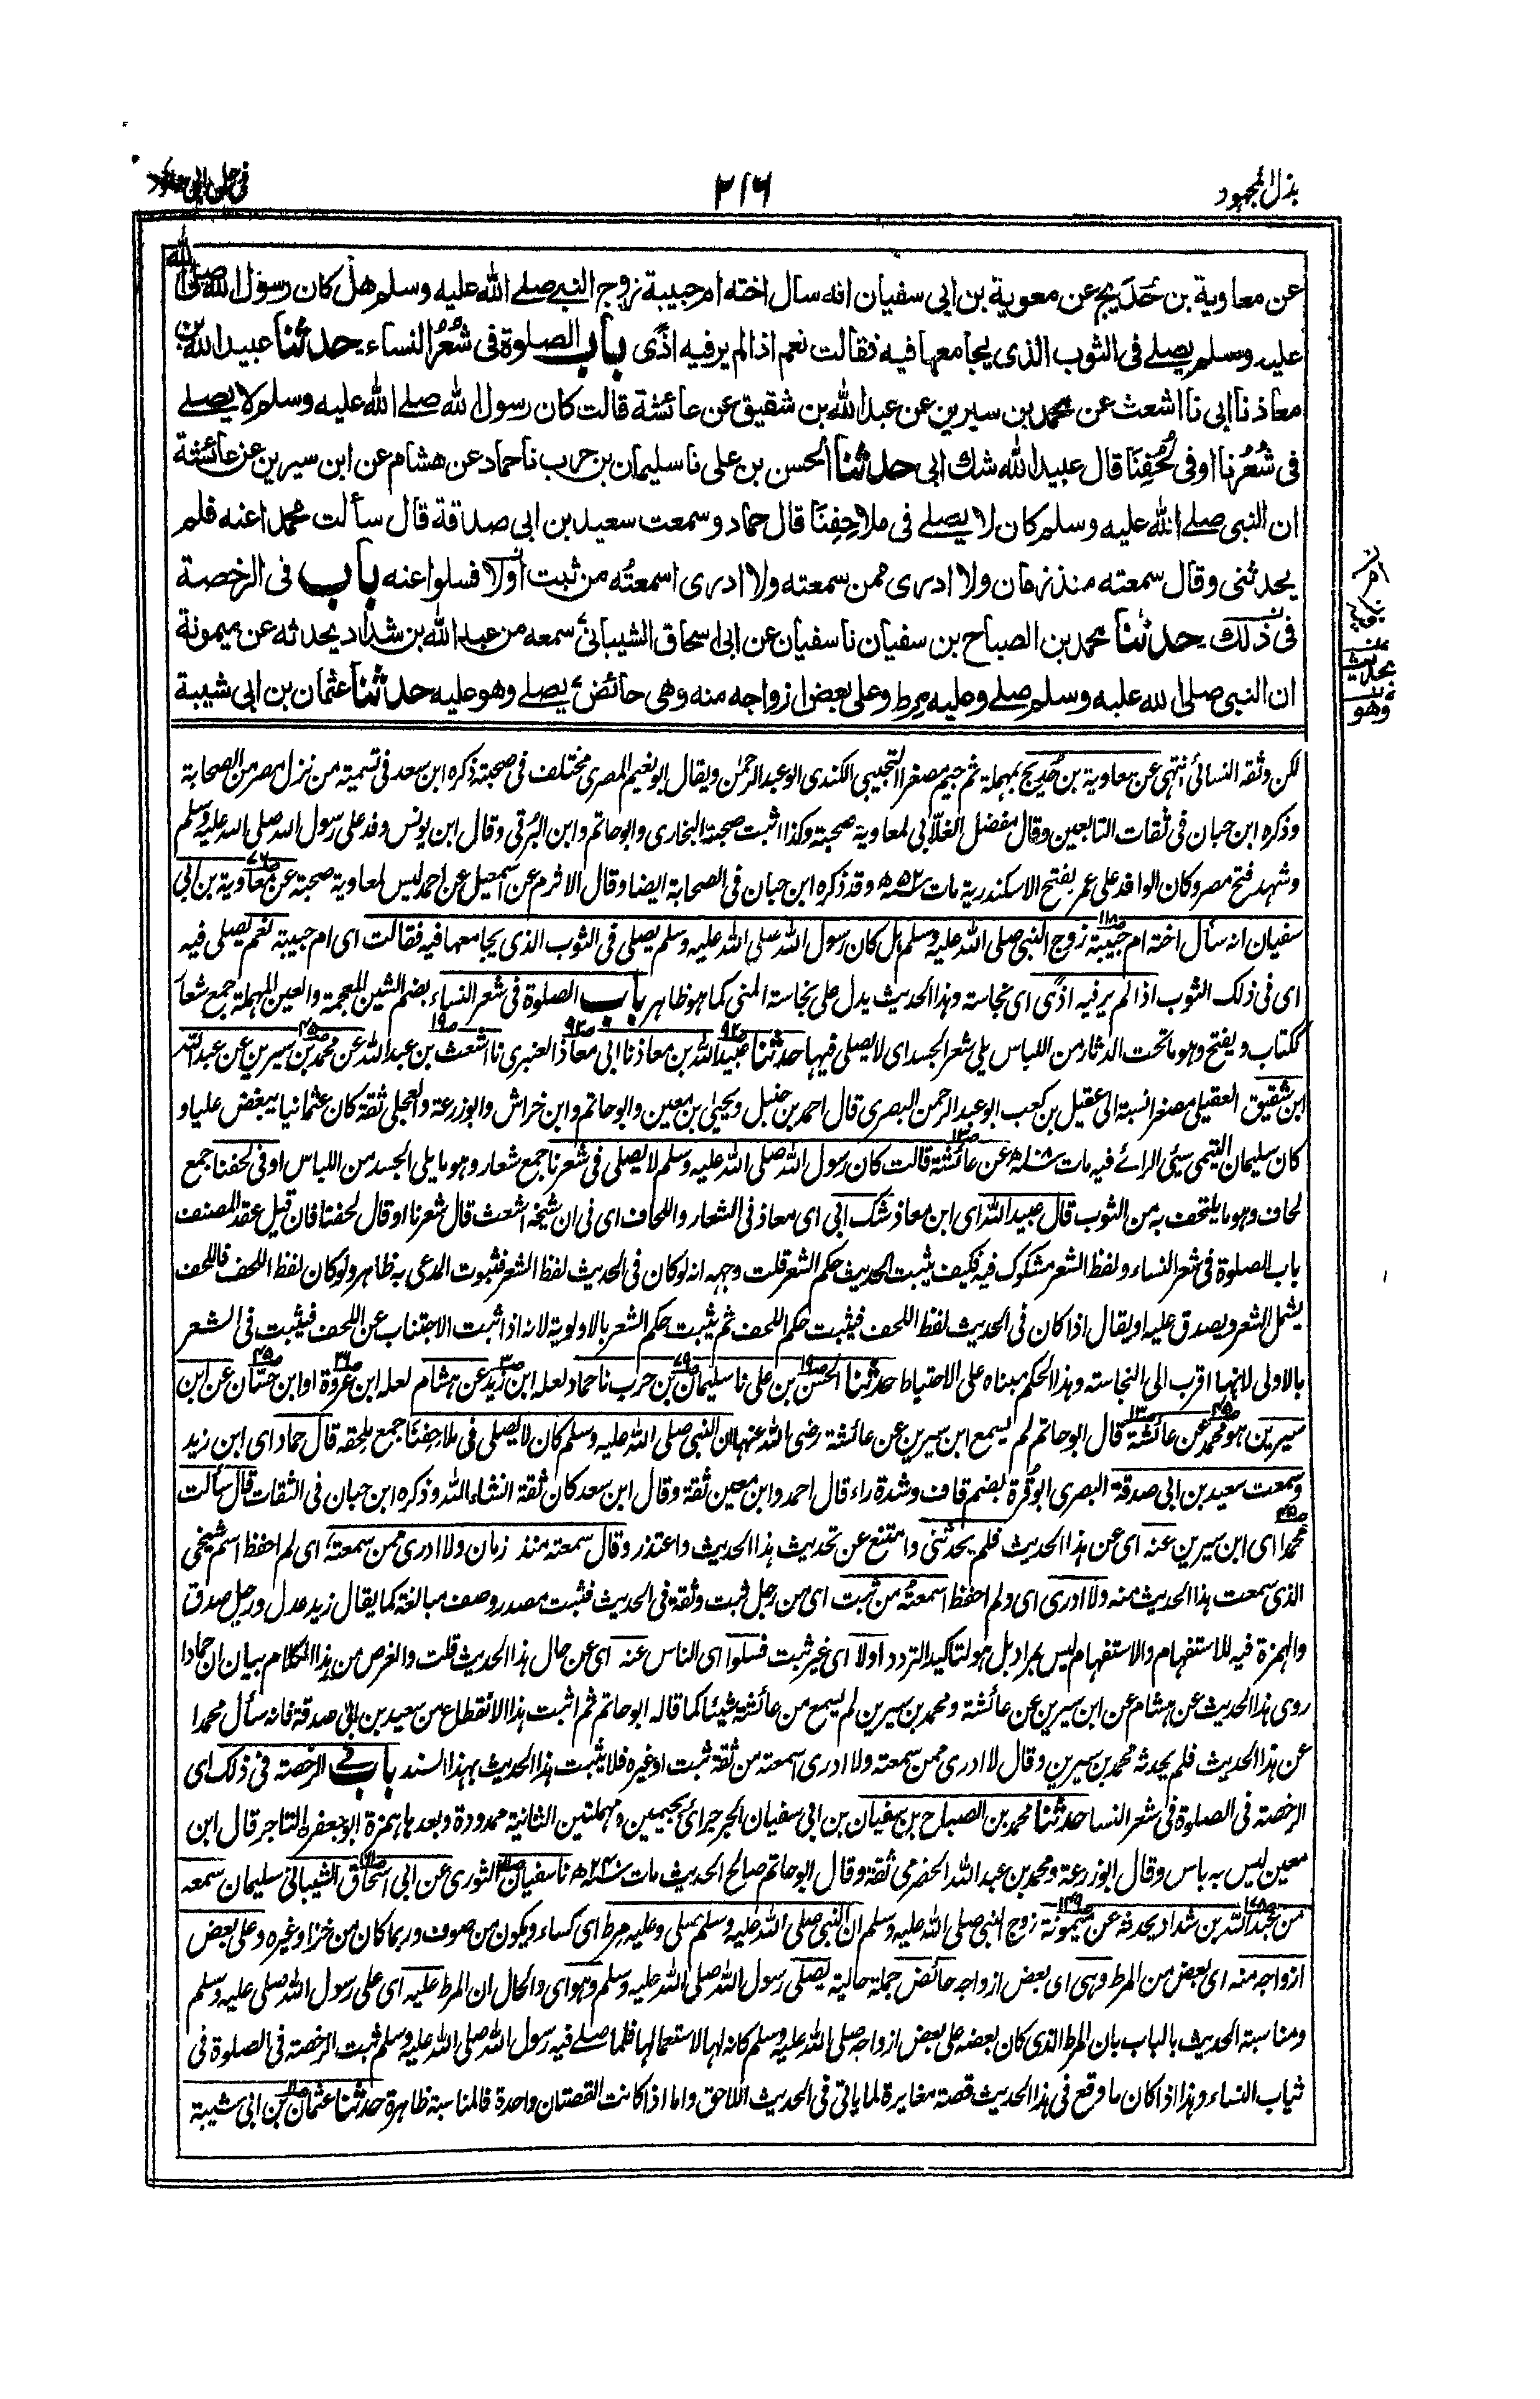 بذل المجهود
٢١٦
في حل ابي داود
عن معاوية بن حُدَيج عن معوية بن ابى سفيان انه سال اخته ام حبيبة زوج النبى صلے الله عليه وسلم هل كان رسول الله صلى الله
عليه وسلم يصلے فى الثوب الذى يجامعها فيه فقالت نعم اذا لم ير فيه اذًى باب الصلوة فى شُعُر النساء حدثنا عبيد الله بن
معاذ نا ابى نا اشعث عن محمد بن سيرين عن عبد الله بن شقيق عن عائشة قالت كان رسول الله صلے الله عليه وسلم لا يصلے
فى شُعُرنا او فى لُحُفِنَا قال عبيد الله شك ابى حدثنا الحسن بن على نا سليمان بن حرب نا حماد عن هشام عن ابن سيرين عن عائشة
ان النبى صلے الله عليه وسلم كان لا يصلے فى ملاحِفِنَا قال حماد وسمعت سعيد بن ابى صدقة قال سألت محمدا عنه فلم
يحدثنى وقال سمعته منذ زمان ولا ادرى ممن سمعته ولا ادرى اسمعتُه من ثبت اولا فسلوا عنه باب فى الرخصة
فى ذلك حدثنا محمد بن الصباح بن سفيان نا سفيان عن ابى اسحاق الشيبانى سمعه من عبد الله بن شداد يحدثه عن ميمونة
ان النبى صلى الله عليه وسلم صلے وعليه مِرط وعلى بعض ازواجه منه وهى حائض يصلے وهو عليه حدثنا عثمان بن ابى شيبة
لكن وثقه النسائى انتهى عن معاوية بن حُديج بمهملة ثم جيم مصغرا التجيبى الكندى ابو عبد الرحمن ويقال ابو نعيم المصرى مختلف فى صحبته ذكره ابن سعد فى تسمية من نزل مصر من الصحابة
وذكره ابن حبان فى ثقات التابعين وقال مفضل الغلّابى لمعاوية صحبة وكذا اثبت صحبته البخارى وابو حاتم وابن البرقى وقال ابن يونس وفد على رسول الله صلى الله عليه وسلم
وشهد فتح مصر وكان الوافد على عمر بفتح الاسكندرية مات سنة ٥٢ھ وقد ذكره ابن حبان فى الصحابة ايضا وقال الاثرم عن اسمعيل عن احمد ليس لمعاوية صحبة عن معاوية بن ابى
سفيان انه سأل اخته ام حبيبة زوج النبى صلى الله عليه وسلم هل كان رسول الله صلى الله عليه وسلم يصلى فى الثوب الذى يجامعها فيه فقالت اى ام حبيبة نعم يصلى فيه
اى فى ذلك الثوب اذا لم ير فيه اذًى اى نجاسة وهذا الحديث يدل على نجاسة المنى كما هو ظاهر باب الصلوة فى شعر النساء بضم الشين المعجمة والعين المهملة جمع شعار
ككتاب ويفتح وهو ما تحت الدثار من اللباس يلى شعر الجسد اى لا يصلى فيها حدثنا عبيد الله بن معاذ نا ابى معاذ العنبرى نا اشعث بن عبد الله عن محمد بن سيرين عن عبد الله
ابن شقيق العقيلى مصغرا نسبة الى عقيل بن كعب ابو عبد الرحمن البصرى قال احمد بن حنبل ويحيى بن معين وابو حاتم وابن خراش وابو زرعة والعجلى ثقة كان عثمانيا يبغض عليا و
كان سليمان التيمى سيئ الرائے فيه مات سنة ١٠٨ھ عن عائشة قالت كان رسول الله صلى الله عليه وسلم لا يصلى فى شعرنا جمع شعار وهو ما يلى الجسد من اللباس او فى لحفنا جمع
لحاف وهو ما يلتحف به من الثوب قال عبيد الله اى ابن معاذ شك ابى اى معاذ فى الشعار واللحاف اى فى ان شيخه اشعث قال شعرنا او قال لحفنا فان قيل عقد المصنف
باب الصلوة فى شعر النساء ولفظ الشعر مشكوك فيه فكيف يثبت الحديث حكم الشعر قلت وجهه انه لو كان فى الحديث لفظ الشعر فثبوت المدعى به ظاهر ولو كان لفظ اللحف فاللحف
يشمل الشعر ويصدق عليه او يقال اذا كان فى الحديث لفظ اللحف فيثبت حكم اللحف ثم يثبت حكم الشعر بالاولوية لانه اذا ثبت الاجتناب عن اللحف فيثبت فى الشعر
بالاولى لانها اقرب الى النجاسة وهذا الحكم مبناه على الاحتياط حدثنا الحسن بن على نا سليمان بن حرب نا حماد لعله ابن زيد عن هشام لعله ابن عروة او ابن حسان عن ابن
سيرين هو محمد عن عائشة قال ابو حاتم لم يسمع ابن سيرين عن عائشة رضى الله عنها ان النبى صلى الله عليه وسلم كان لا يصلى فى ملاحفنا جمع ملحفة قال حماد اى ابن زيد
وسمعت سعيد بن ابى صدقة البصرى ابو قُرة بضم قاف وشدة راء قال احمد وابن معين ثقة وقال ابن سعد كان ثقة انشاء الله وذكره ابن حبان فى الثقات قال سألت
محمدا اى ابن سيرين عنه اى عن هذا الحديث فلم يحدثنى وامتنع عن تحديث هذا الحديث واعتذر وقال سمعته منذ زمان ولا ادرى ممن سمعته اى لم احفظ اسم شيخى
الذى سمعت هذا الحديث منه ولا ادرى اى ولم احفظ اسمعتُه من ثبت اى من رجل ثبت وثقة فى الحديث فثبت مصدر وصف مبالغة كما يقال زيد عدل ورجل صدق
والهمزة فيه للاستفهام والاستفهام ليس بمراد بل هو لتاكيد التردد اولا اى غير ثبت فسلوا اى الناس عنه اى عن حال هذا الحديث قلت والغرض من هذا الكلام بيان ان حمادا
روى هذا الحديث عن هشام عن ابن سيرين عن عائشة ومحمد بن سيرين لم يسمع من عائشة شيئا كما قاله ابو حاتم ثم اثبت هذا الانقطاع من سعيد بن ابى صدقة فانه سأل محمدا
عن هذا الحديث فلم يحدثه محمد بن سيرين وقال لا ادرى ممن سمعته ولا ادرى اسمعته من ثقة ثبت او غيره فلا يثبت هذا الحديث بهذا السند باب فى الرخصة فى ذلك اى
الرخصة فى الصلوة فى شعر النسا حدثنا محمد بن الصباح بن سفيان بن ابى سفيان الجرجرائى بجيمين ومهملتين الثانية ممدودة وبعدها همزة ابو جعفر التاجر قال ابن
معين ليس به باس وقال ابو زرعة ومحمد بن عبد الله الحضرمى ثقة وقال ابو حاتم صالح الحديث مات سنة ٢٤٠ھ نا سفيان الثورى عن ابى اسحاق الشيبانى سليمان سمعه
من عبد الله بن شداد يحدثه عن ميمونة زوج النبى صلى الله عليه وسلم ان النبى صلى الله عليه وسلم صلى وعليه مِرط اى كساء ويكون من صوف وربما كان من خز او غيره وعلى بعض
ازواجه منه اى بعض من المرط وهى اى بعض ازواجه حائض جملة حالية يصلى رسول الله صلى الله عليه وسلم وهو اى والحال ان المرط عليه اى على رسول الله صلى عليه وسلم
ومناسبة الحديث بالباب بان المرط الذى كان بعضه على بعض ازواجه صلى الله عليه وسلم كانه لها لاستعمالها فلما صلے فيه رسول الله صلى الله عليه وسلم ثبت الرخصة فى الصلوة فى
ثياب النساء وهذا اذا كان ما وقع فى هذا الحديث قصة مغايرة لما ياتى فى الحديث اللاحق واما اذا كانت القصتان واحدة فالمناسبة ظاهرة حدثنا عثمان بن ابى شيبة